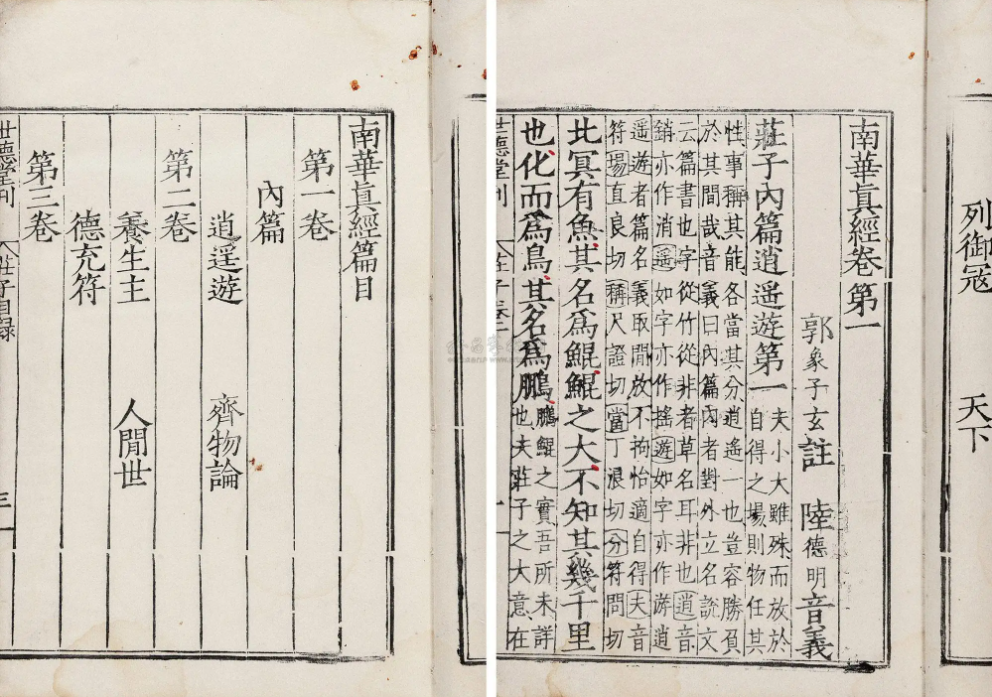 南華眞經篇目
第一卷
內篇
逍遥遊 齊物論
第二卷
養生主 人閒世
德充符
第三卷
世德堂刊 莊子目録 三
列御寇 天下
南華眞經卷第一
郭象子玄註 陸德明音義
莊子內篇逍遥遊第一
夫小大雖殊而放於
自得之場則物任其
性事稱其能各當其分逍遥一也豈容勝負
於其間哉音義曰內篇內者對外立名說文
云篇書也字從竹從非者草名耳非也逍音
銷亦作消遥如字亦作搖遊如字亦作游逍
遥遊者篇名義取閒放不拘怡適自得夫音
符場直良切稱尺證切當丁浪切分符問切
北冥有魚其名爲鯤鯤之大不知其幾千里
也化而爲鳥其名爲鵬
鵬鯤之實吾所未詳
也夫莊子之大意在
世德堂刊 莊子卷一 一